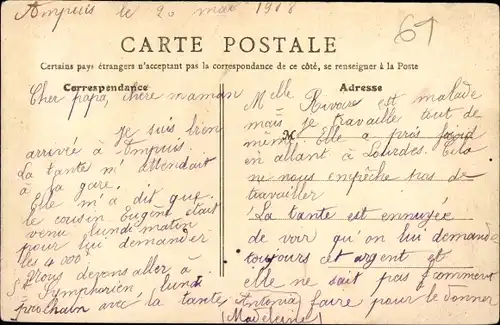 Ampuis le 20 mai 1908
61
CARTE POSTALE
Certains pays étrangers n'acceptant pas la correspondance de ce côté, se renseigner à la Poste
Correspondance
Cher papa, chère maman
Je suis bien
arrivée à Ampuis.
La tante m'attendait
à la gare.
Elle m'a dit que
le cousin Eugène était
venu lundi matin
pour lui demander
les 4 000
Nous devons aller à
St Symphorien lundi
prochain avec la tante Antonia
(Madeleine)
Adresse
M
Melle Rivoire est malade
mais je travaille tout de
même. Elle a pris froid
en allant à Lourdes. Cela
ne nous empêche pas de
travailler
La tante est ennuyée
de voir qu'on lui demande
toujours cet argent et
elle ne sait pas comment
faire pour le donner